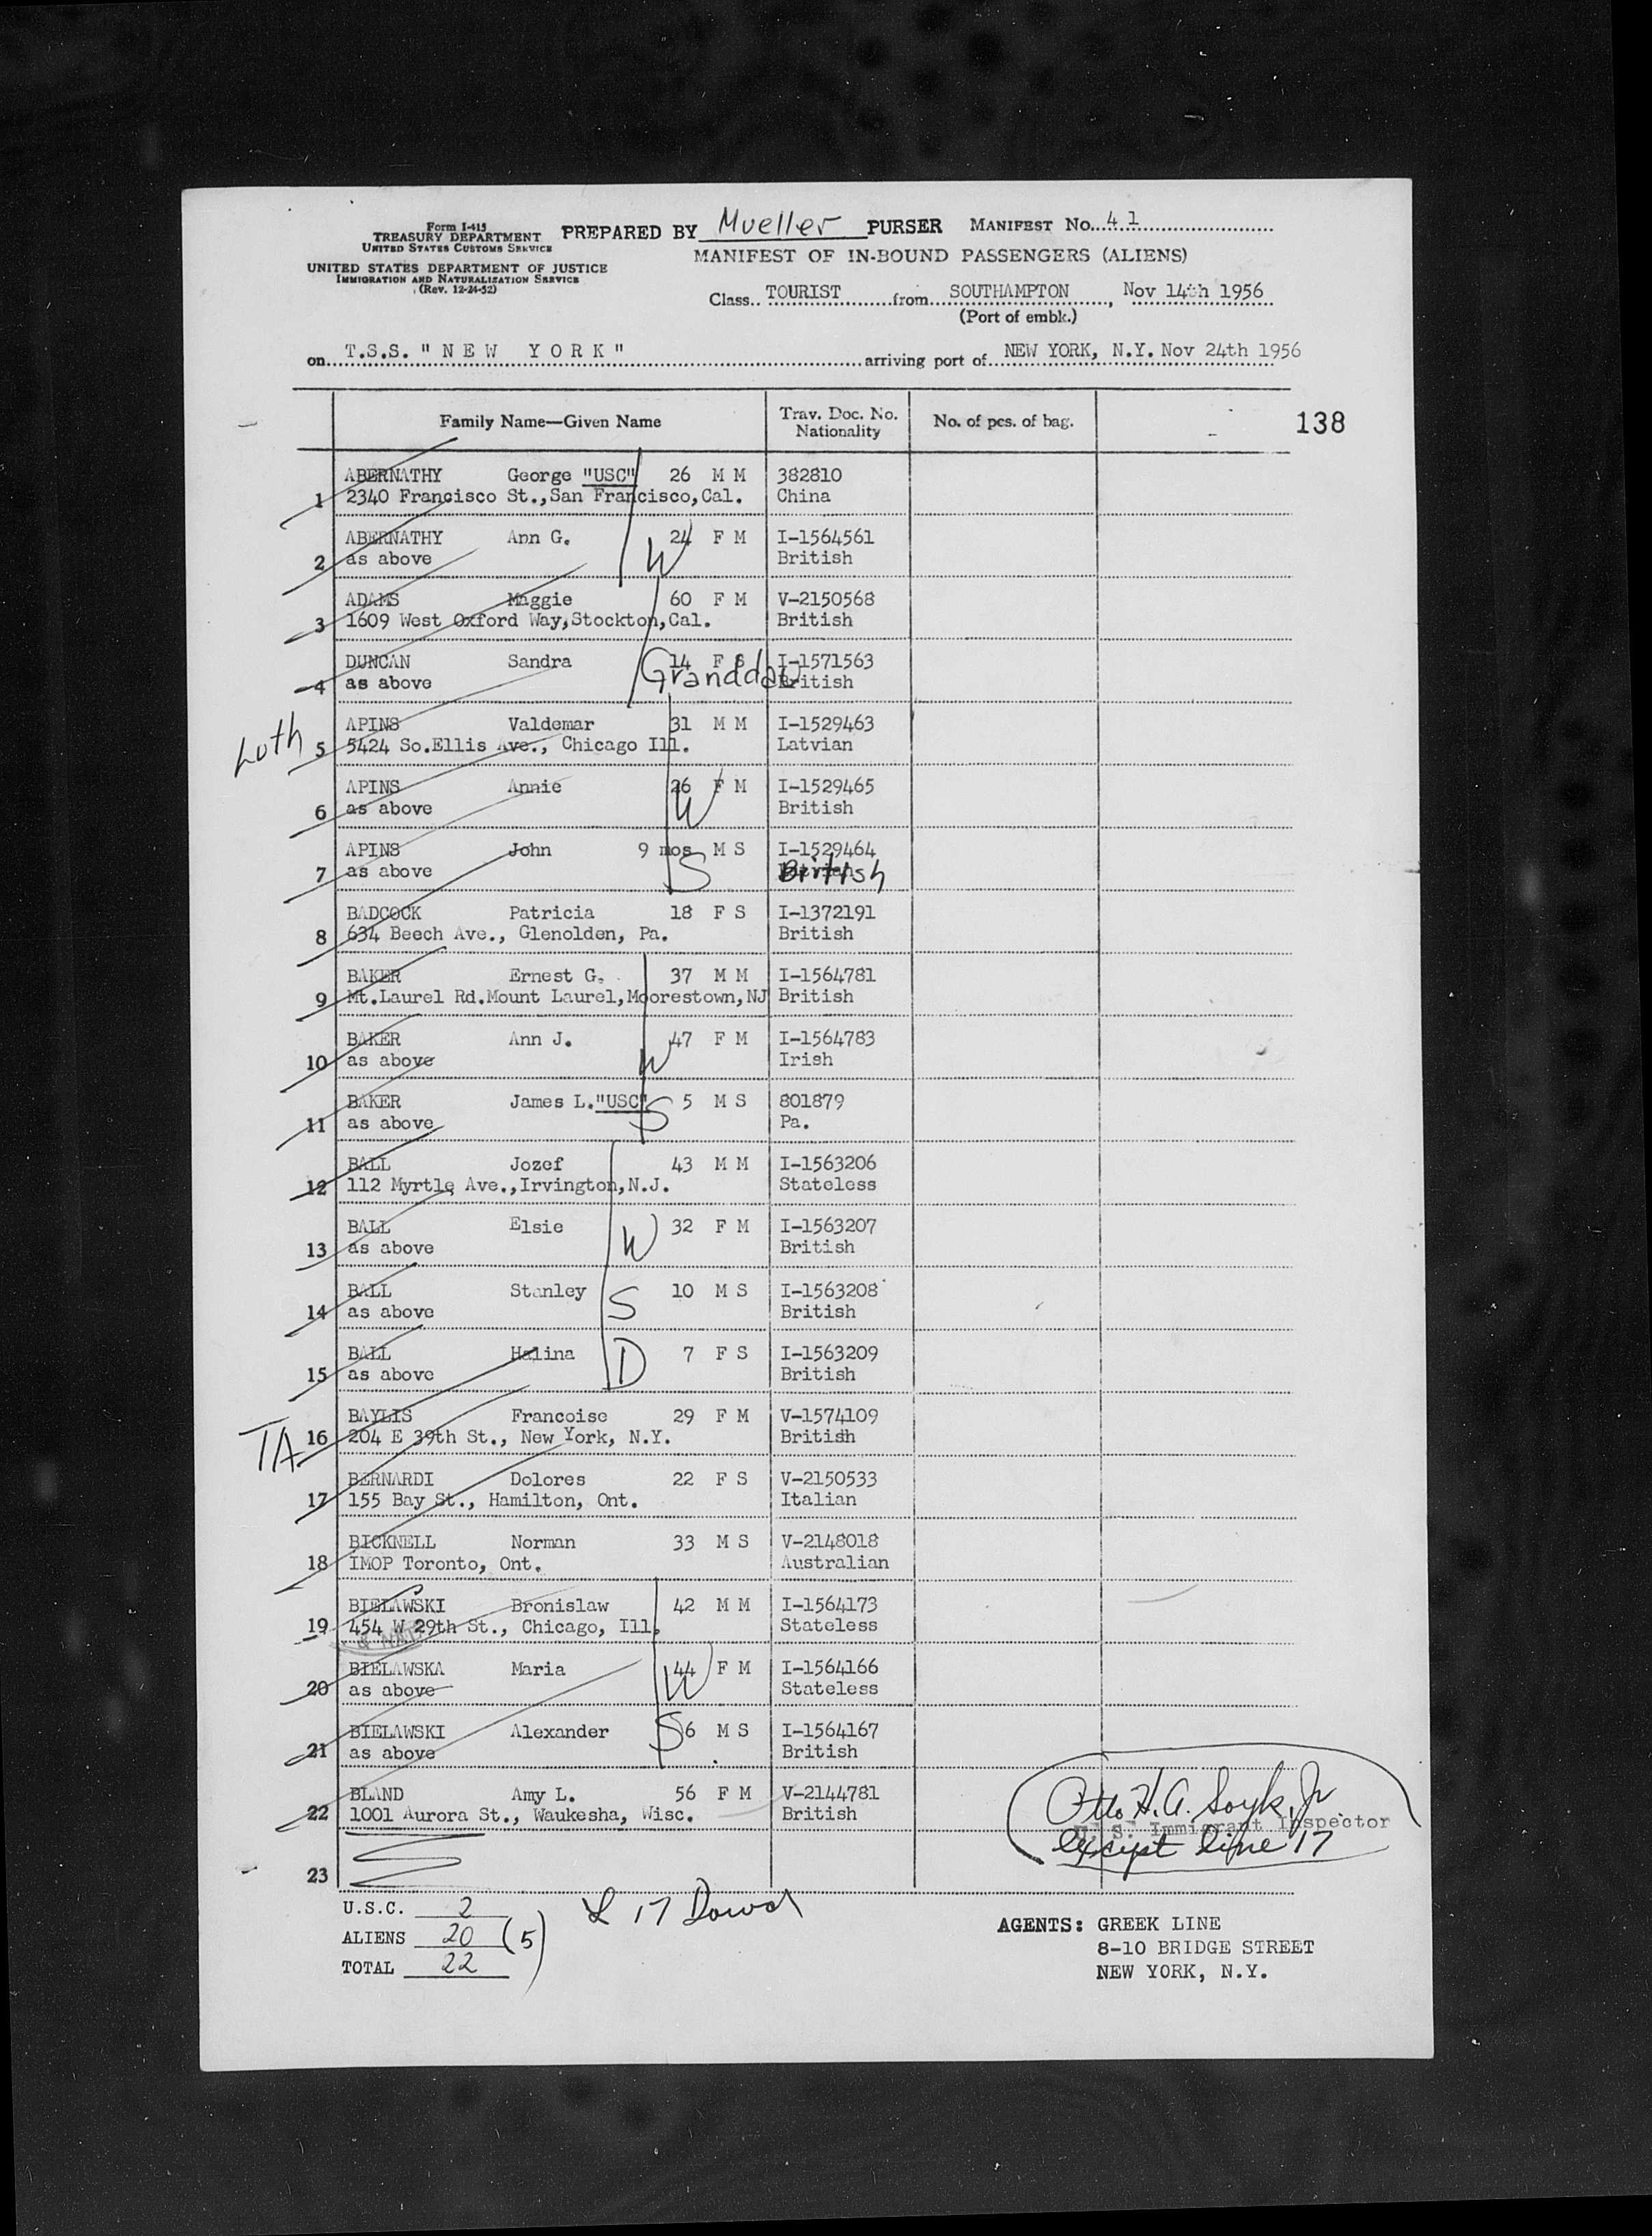 Form I-415
TREASURY DEPARTMENT
UNITED STATES CUSTOMS SERVICE
UNITED STATES DEPARTMENT OF JUSTICE
IMMIGRATION AND NATURALIZATION SERVICE
(Rev. 12-24-52)
PREPARED BY Mueller PURSER MANIFEST No. 41
MANIFEST OF IN-BOUND PASSENGERS (ALIENS)
Class TOURIST from SOUTHAMPTON, Nov 14th 1956
(Port of embk.)
on T.S.S. "NEW YORK" arriving port of NEW YORK, N.Y. Nov 24th 1956
Family Name—Given Name Trav. Doc. No. Nationality No. of pcs. of bag. 138
ABERNATHY George "USC" 26 M M 382810
1 2340 Francisco St., San Francisco, Cal. China
ABERNATHY Ann G. 24 F M I-1564561
2 as above W British
ADAMS Maggie 60 F M V-2150568
3 1609 West Oxford Way, Stockton, Cal. British
DUNCAN Sandra 14 F S I-1571563
4 as above Granddau British
APINS Valdemar 31 M M I-1529463
Luth 5 5424 So.Ellis Ave., Chicago Ill. Latvian
APINS Annie 26 F M I-1529465
6 as above W British
APINS John 9 mos M S I-1529464
7 as above S British
BADCOCK Patricia 18 F S I-1372191
8 634 Beech Ave., Glenolden, Pa. British
BAKER Ernest G. 37 M M I-1564781
9 Mt.Laurel Rd.Mount Laurel, Moorestown, NJ British
BAKER Ann J. 47 F M I-1564783
10 as above W Irish
BAKER James L. "USC" S 5 M S 801879
11 as above Pa.
BALL Jozef 43 M M I-1563206
12 112 Myrtle Ave., Irvington, N.J. Stateless
BALL Elsie W 32 F M I-1563207
13 as above British
BALL Stanley S 10 M S I-1563208
14 as above British
BALL Halina D 7 F S I-1563209
15 as above British
BAYLIS Francoise 29 F M V-1574109
TA 16 204 E 39th St., New York, N.Y. British
BERNARDI Dolores 22 F S V-2150533
17 155 Bay St., Hamilton, Ont. Italian
BICKNELL Norman 33 M S V-2148018
18 IMOP Toronto, Ont. Australian
BIELAWSKI Bronislaw 42 M M I-1564173
19 454 W 29th St., Chicago, Ill. Stateless
BIELAWSKA Maria 44 F M I-1564166
20 as above W Stateless
BIELAWSKI Alexander S 6 M S I-1564167
21 as above British
BLAND Amy L. 56 F M V-2144781
22 1001 Aurora St., Waukesha, Wisc. British
Otto H. A. Soyk, Jr
U. S. Immigrant Inspector
except line 17
23
U.S.C. 2
ALIENS 20 (5)
TOTAL 22
L 17 Dowd
AGENTS: GREEK LINE
8-10 BRIDGE STREET
NEW YORK, N.Y.